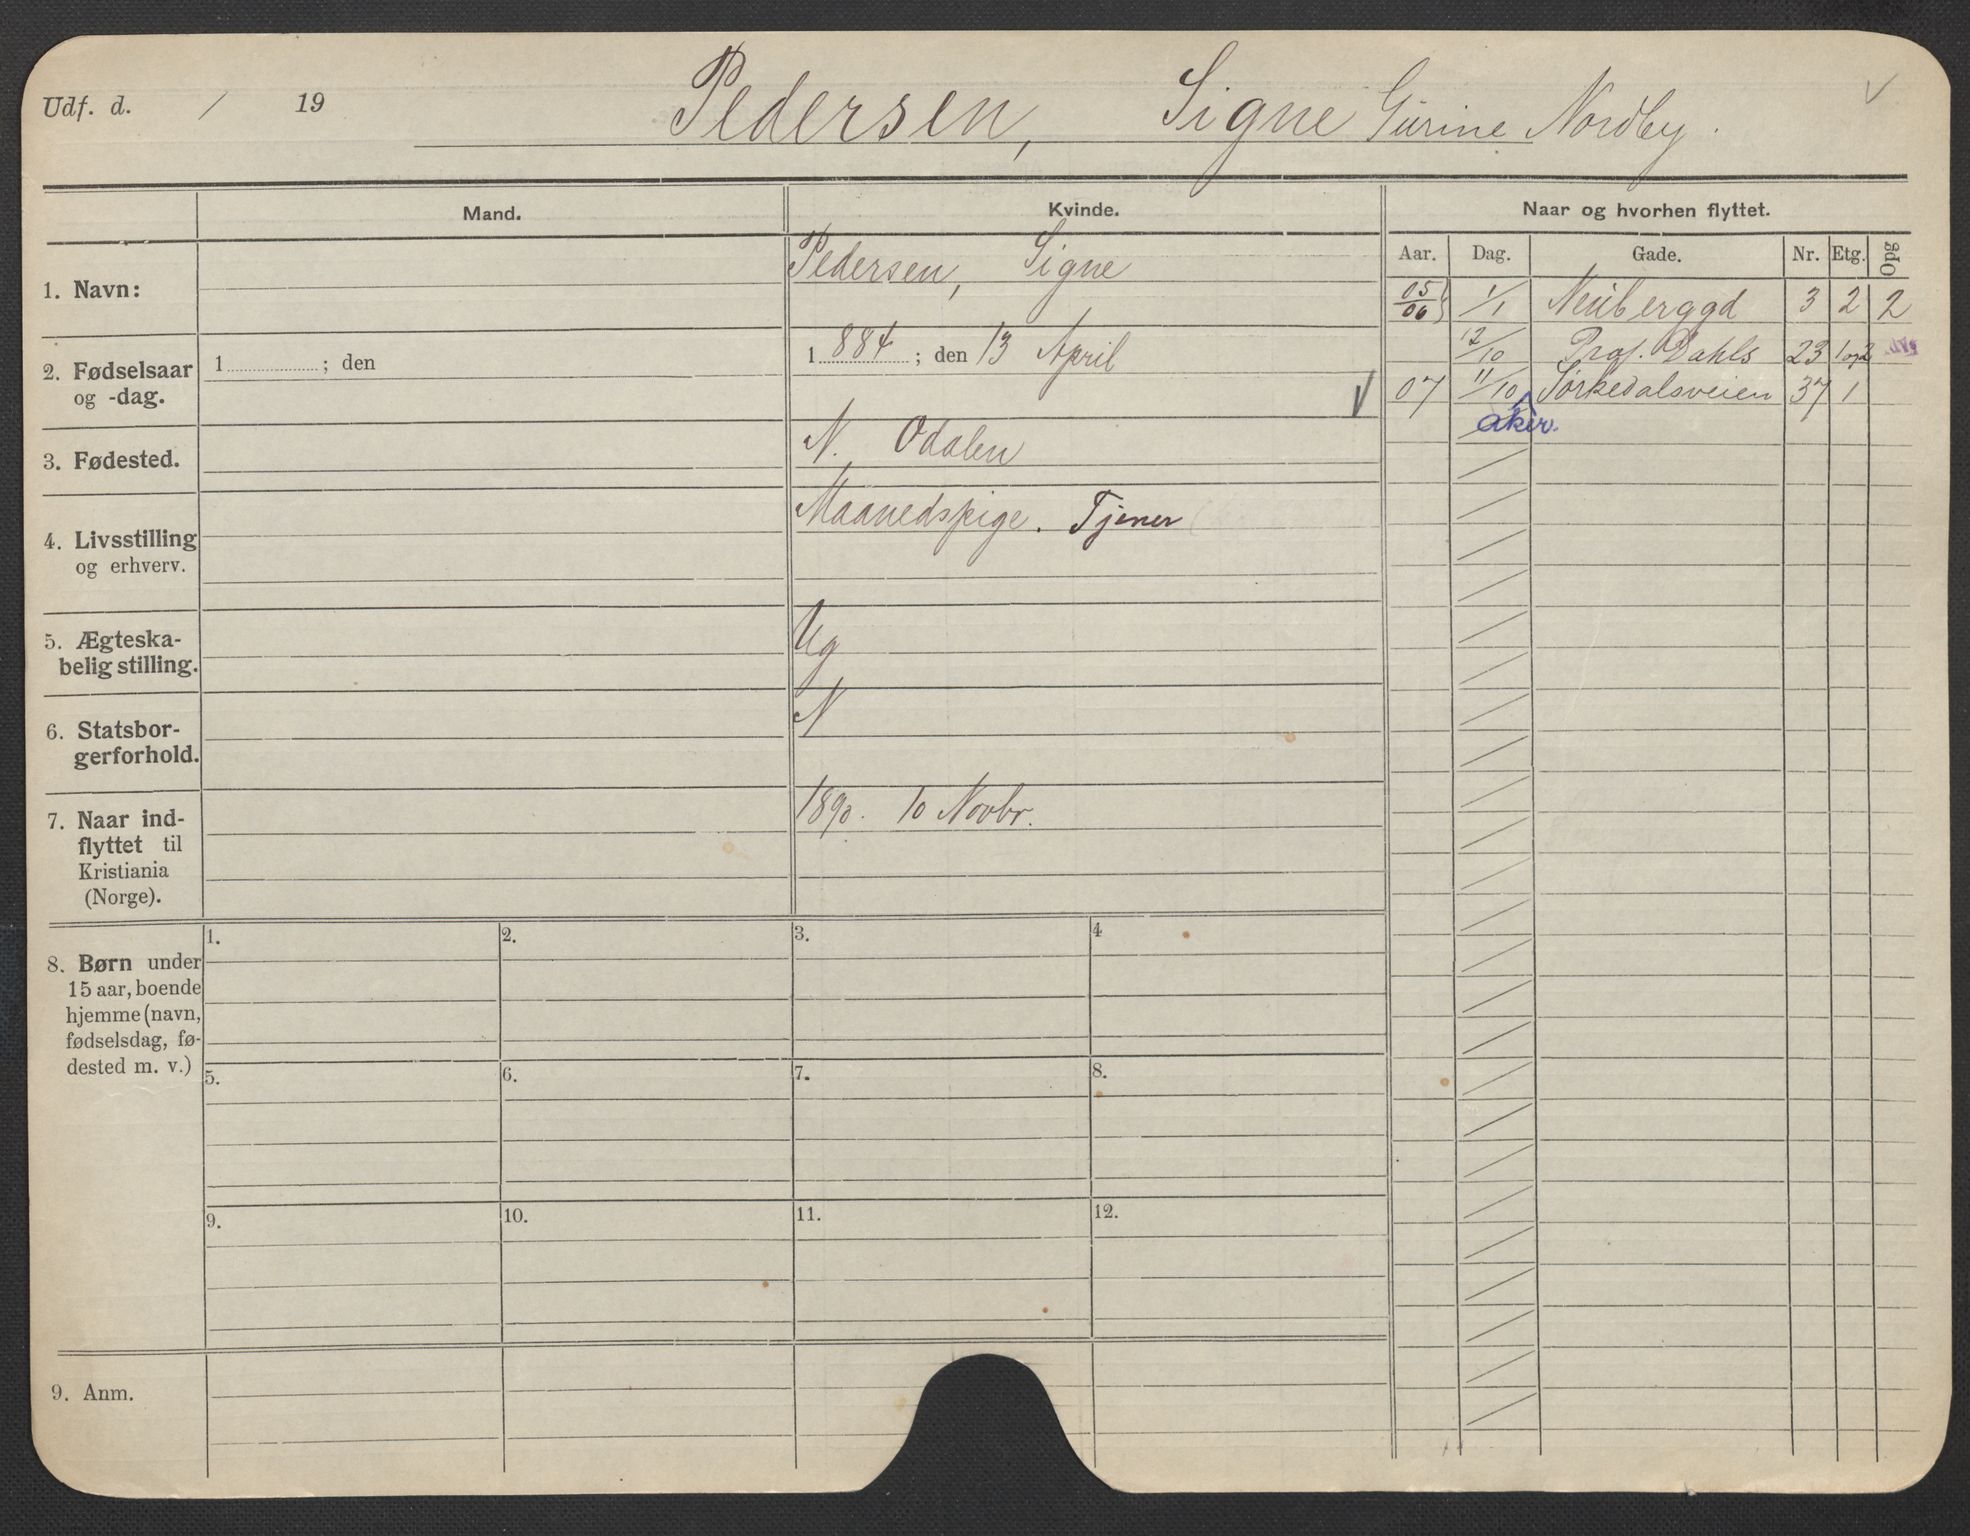 Udf. d. / 19
Pedersen, Signe Gurine Nordby.
Mand.
Kvinde.
Naar og hvorhen flyttet.
Aar. Dag. Gade. Nr. Etg. Opg
1. Navn:
Pedersen, Signe
05/06 1/1 Neuberggd 3 2 2
2. Fødselsaar
og -dag.
1 ; den
1 884 ; den 13 April
12/10 Prof. Dahls 23 1 og 2
07 11/10 Sørkedalsveien 37 1
aker.
3. Fødested.
N. Odalen
4. Livsstilling
og erhverv.
Maanedspige. Tjener
5. Ægteska-
belig stilling.
Ug
6. Statsbor-
gerforhold.
N
7. Naar ind-
flyttet til
Kristiania
(Norge).
1890. 10 Novbr.
8. Børn under
15 aar, boende
hjemme (navn,
fødselsdag, fø-
dested m. v.)
1. 2. 3. 4
5. 6. 7. 8.
9. 10. 11. 12.
9. Anm.